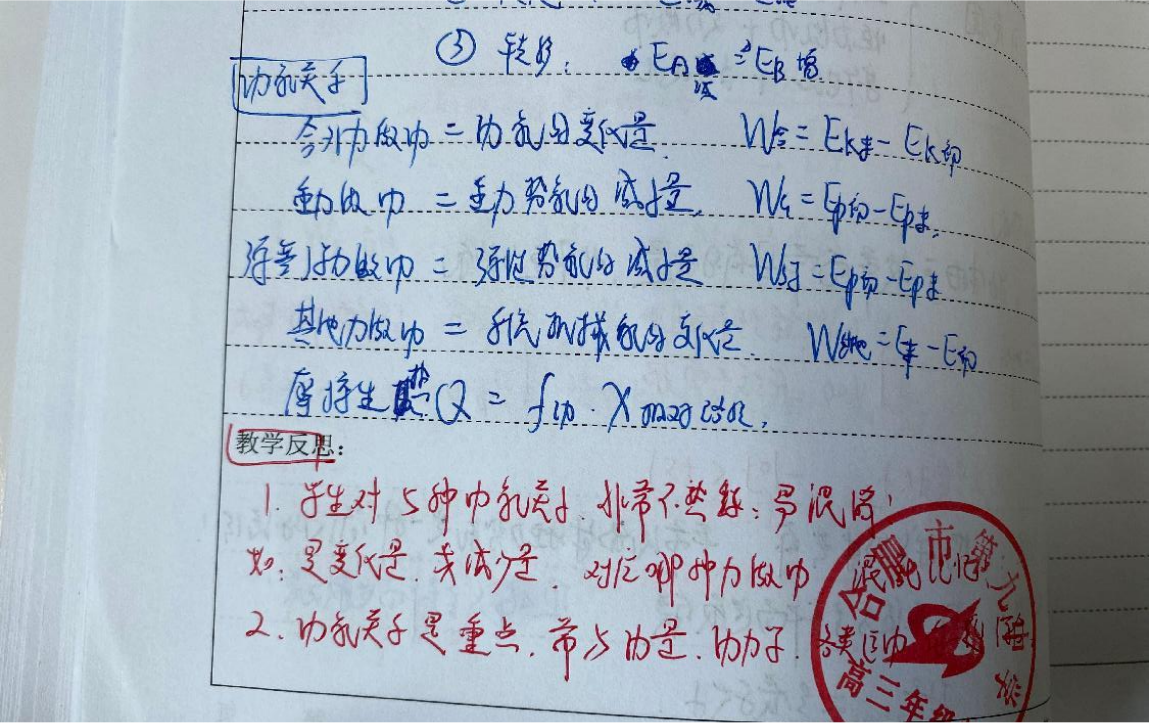 ③ 转移: E_A减 = E_B增
功能关系
合外力做功 = 动能的变化量 W合 = Ek末 - Ek初
重力做功 = 重力势能的减少量, W_G = Ep初 - Ep末,
弹簧弹力做功 = 弹性势能的减少量 W弹 = Ep初 - Ep末
其他力做功 = 系统机械能的变化量. W其他 = E末 - E初
摩擦生热 Q = f动 · X相对路程,
教学反思:
1. 学生对5种功能关系, 非常不熟练: 易混淆
如: 是变化量. 或减少量. 对应哪种力做功
2. 功能关系是重点. 常与动量. 动力学.
合肥市第九
高三年级